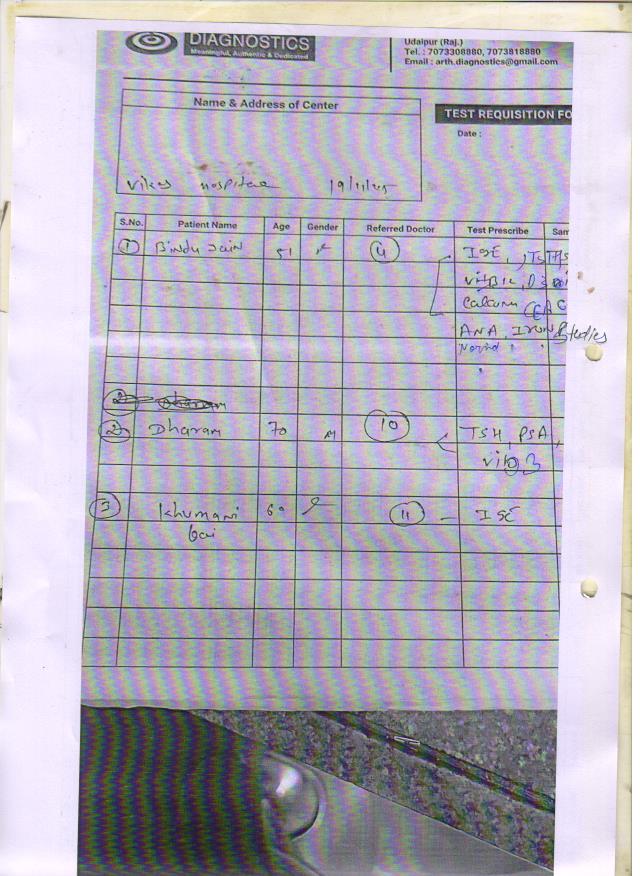 DIAGNOSTICS
Meaningful, Authentic & Dedicated
Udaipur (Raj.)
Tel. : 7073308880, 7073818880
Email : arth.diagnostics@gmail.com
Name & Address of Center
TEST REQUISITION FO
Date :
S.No. Patient Name Age Gender Referred Doctor Test Prescribe Sam
1 Bindu Jain 51 4 ISE,
Calcium
ANA, Iron Studies
2 Dharam 70 M 10 TSH, PSA,
3 Khumani 60 11 - ISE
bai